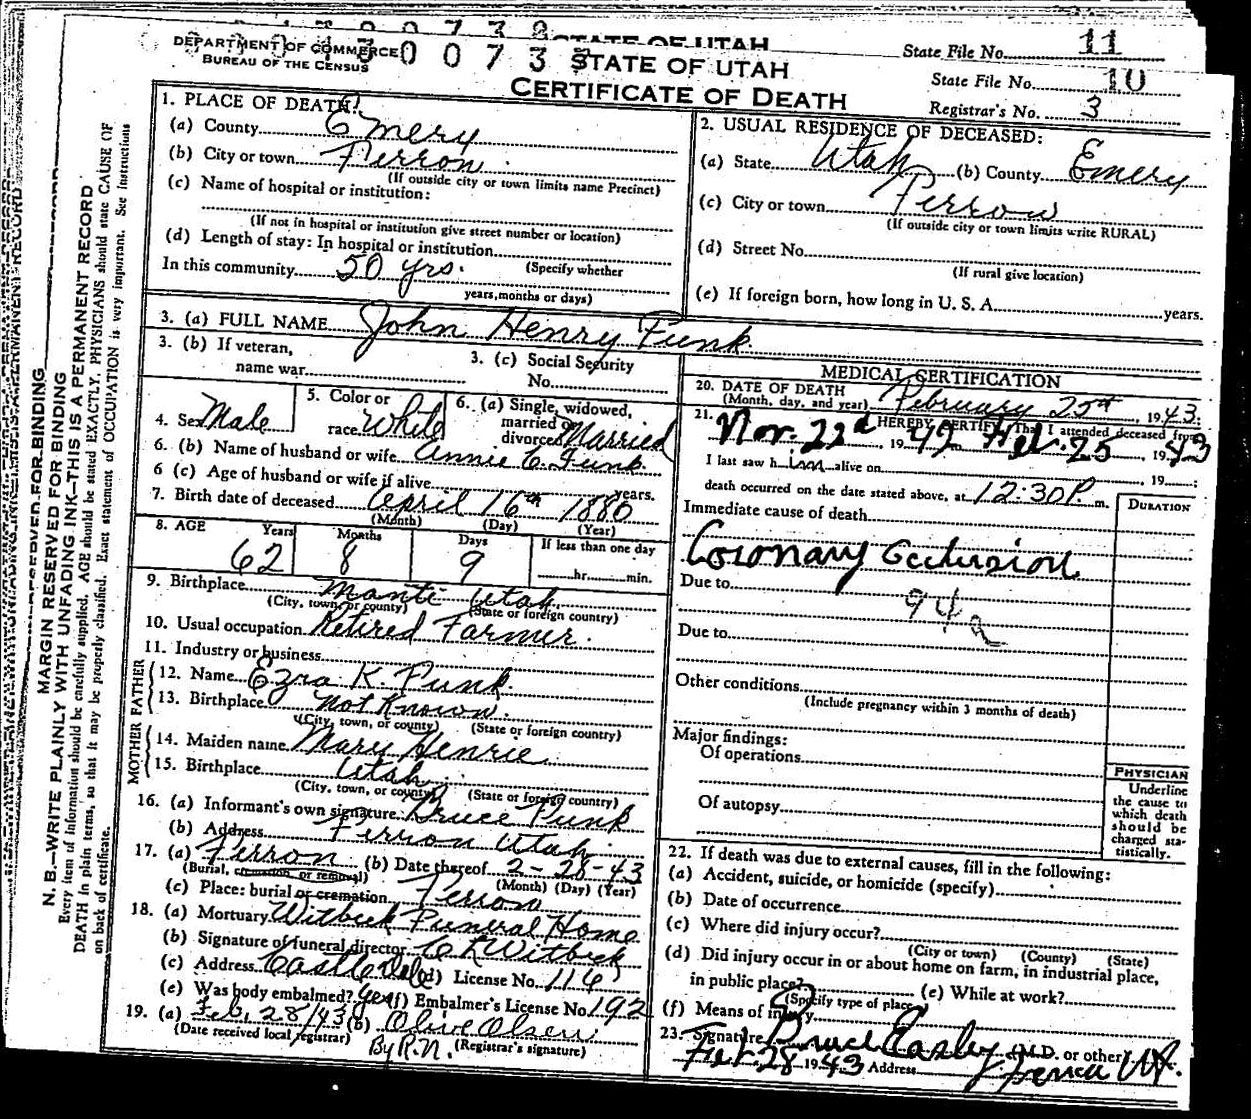 STATE OF UTAH
State File No. 11
DEPARTMENT OF COMMERCE
BUREAU OF THE CENSUS
0 0 7 3
STATE OF UTAH
CERTIFICATE OF DEATH
State File No. 10
Registrar's No. 3
1. PLACE OF DEATH:
(a) County Emery
(b) City or town Ferron
(If outside city or town limits name Precinct)
(c) Name of hospital or institution:
(If not in hospital or institution give street number or location)
(d) Length of stay: In hospital or institution
(Specify whether
In this community 50 yrs.
years, months or days)
2. USUAL RESIDENCE OF DECEASED:
(a) State Utah (b) County Emery
(c) City or town Ferron
(If outside city or town limits write RURAL)
(d) Street No.
(If rural give location)
(e) If foreign born, how long in U. S. A. years.
3. (a) FULL NAME John Henry Funk
3. (b) If veteran,
name war
3. (c) Social Security
No.
4. Sex Male
5. Color or
race White
6. (a) Single, widowed,
married or
divorced Married
6. (b) Name of husband or wife Annie C. Funk
6 (c) Age of husband or wife if alive years.
7. Birth date of deceased April 16th 1880
(Month) (Day) (Year)
8. AGE Years Months Days If less than one day
62 8 9 hr. min.
9. Birthplace Manti Utah
(City, town, or county) (State or foreign country)
10. Usual occupation Retired Farmer.
11. Industry or business
FATHER
12. Name Ezra K. Funk.
13. Birthplace Not Known.
(City, town, or county) (State or foreign country)
MOTHER
14. Maiden name Mary Henrie
15. Birthplace Utah
(City, town, or county) (State or foreign country)
16. (a) Informant's own signature Bruce Funk
(b) Address Ferron Utah.
17. (a) Ferron (b) Date thereof 2-28-43
(Burial, cremation, or removal) (Month) (Day) (Year)
(c) Place: burial or cremation Ferron
18. (a) Mortuary Witbeck Funeral Home
(b) Signature of funeral director C R Witbeck
(c) Address Castle Dale (d) License No. 116
(e) Was body embalmed? yes (f) Embalmer's License No. 192
19. (a) Feb, 28/43 (b) Olive Olsen
(Date received local registrar) (Registrar's signature)
By R.N.
MEDICAL CERTIFICATION
20. DATE OF DEATH
(Month, day, and year) February 25th, 1943.
21. I HEREBY CERTIFY That I attended deceased from
Nov. 22d 1942 Feb. 25, 1943
I last saw him alive on , 19 ;
death occurred on the date stated above, at 12:30 P. m.
DURATION
Immediate cause of death
Coronary Occlusion
Due to
94a
Due to
Other conditions
(Include pregnancy within 3 months of death)
Major findings:
Of operations
Of autopsy
PHYSICIAN
Underline
the cause to
which death
should be
charged sta-
tistically.
22. If death was due to external causes, fill in the following:
(a) Accident, suicide, or homicide (specify)
(b) Date of occurrence
(c) Where did injury occur?
(City or town) (County) (State)
(d) Did injury occur in or about home on farm, in industrial place,
in public place? (e) While at work?
(Specify type of place)
(f) Means of injury
23. Signature Bruce Easley (M.D. or other)
Feb. 28 1943 Address Ferron Ut.
MARGIN RESERVED FOR BINDING
N. B.—WRITE PLAINLY WITH UNFADING INK—THIS IS A PERMANENT RECORD
Every item of information should be carefully supplied. AGE should be stated EXACTLY. PHYSICIANS should state CAUSE OF
DEATH in plain terms, so that it may be properly classified. Exact statement of OCCUPATION is very important. See instructions
on back of certificate.